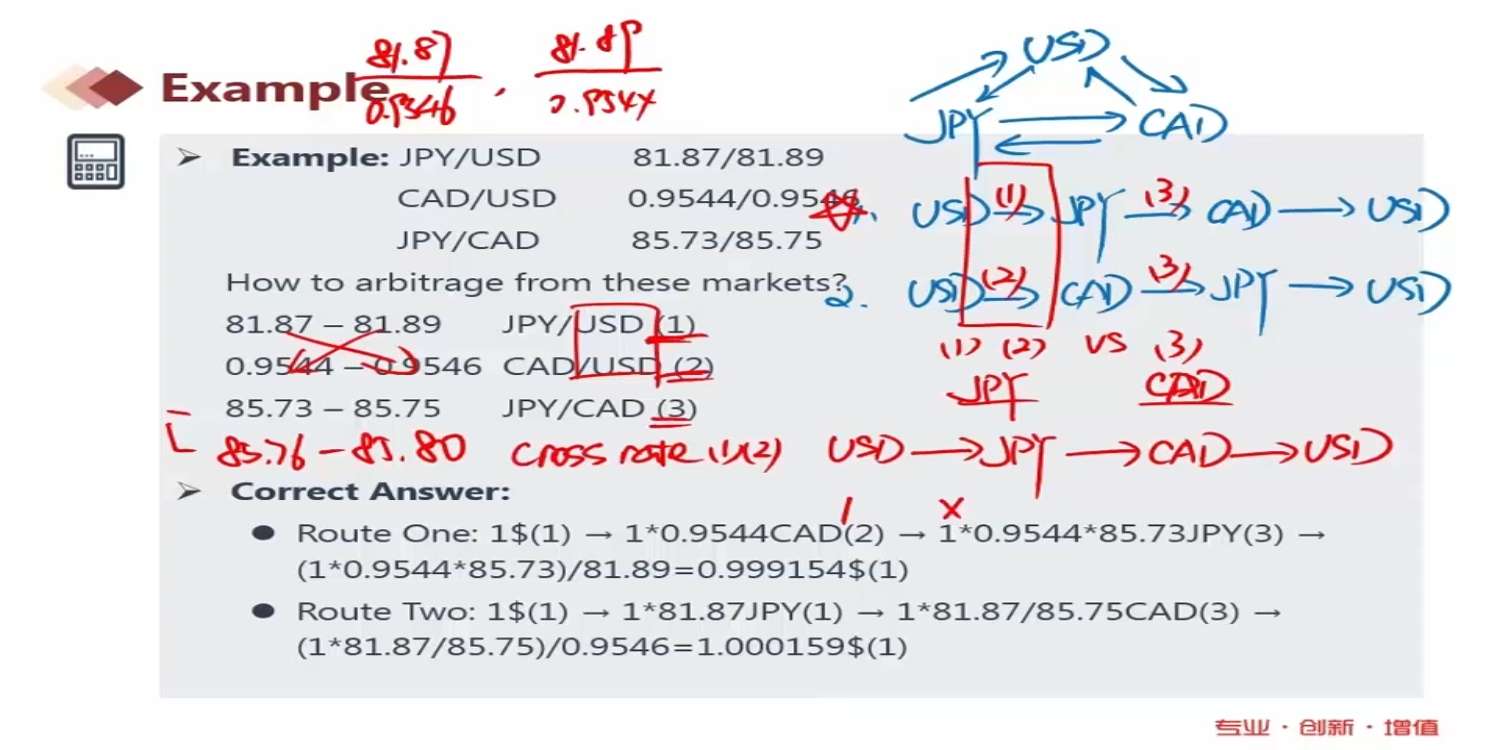 81.87 , 81.89
0.9546 0.9544
USD
Example
JPY CAD
Example: JPY/USD 81.87/81.89
CAD/USD 0.9544/0.9546
1. USD (1)→ JPY (3)→ CAD → USD
JPY/CAD 85.73/85.75
How to arbitrage from these markets?
2. USD (2)→ CAD (3)→ JPY → USD
81.87 – 81.89 JPY/USD (1)
(1) (2) VS (3)
0.9544 – 0.9546 CAD/USD (2)
JPY CAD
85.73 – 85.75 JPY/CAD (3)
85.76 – 85.80 cross rate (1)(2) USD → JPY → CAD → USD
Correct Answer:
/ ×
Route One: 1$(1) → 1*0.9544CAD(2) → 1*0.9544*85.73JPY(3) →
(1*0.9544*85.73)/81.89=0.999154$(1)
Route Two: 1$(1) → 1*81.87JPY(1) → 1*81.87/85.75CAD(3) →
(1*81.87/85.75)/0.9546=1.000159$(1)
专业·创新·增值